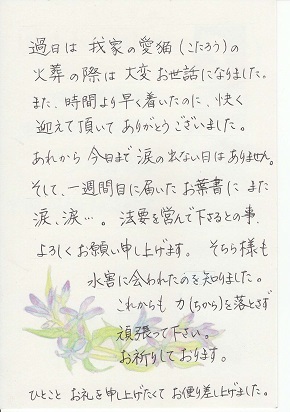 過日は 我家の愛猫(こたろう)の
火葬の際は大変お世話になりました。
また、時間より早く着いたのに、快く
迎えて頂いて ありがとうございました。
あれから 今日まで 涙の出ない日は ありません。
そして、一週間目に届いた お葉書に また
涙、涙…。 法要を営んで下さるとの事、
よろしく お願い申し上げます。 そちら様も
水害に会われたのを知りました。
これからも 力(ちから)を落とさず
頑張って下さい。
お祈りしております。
ひとこと お礼を申し上げたくて お便り差し上げました。